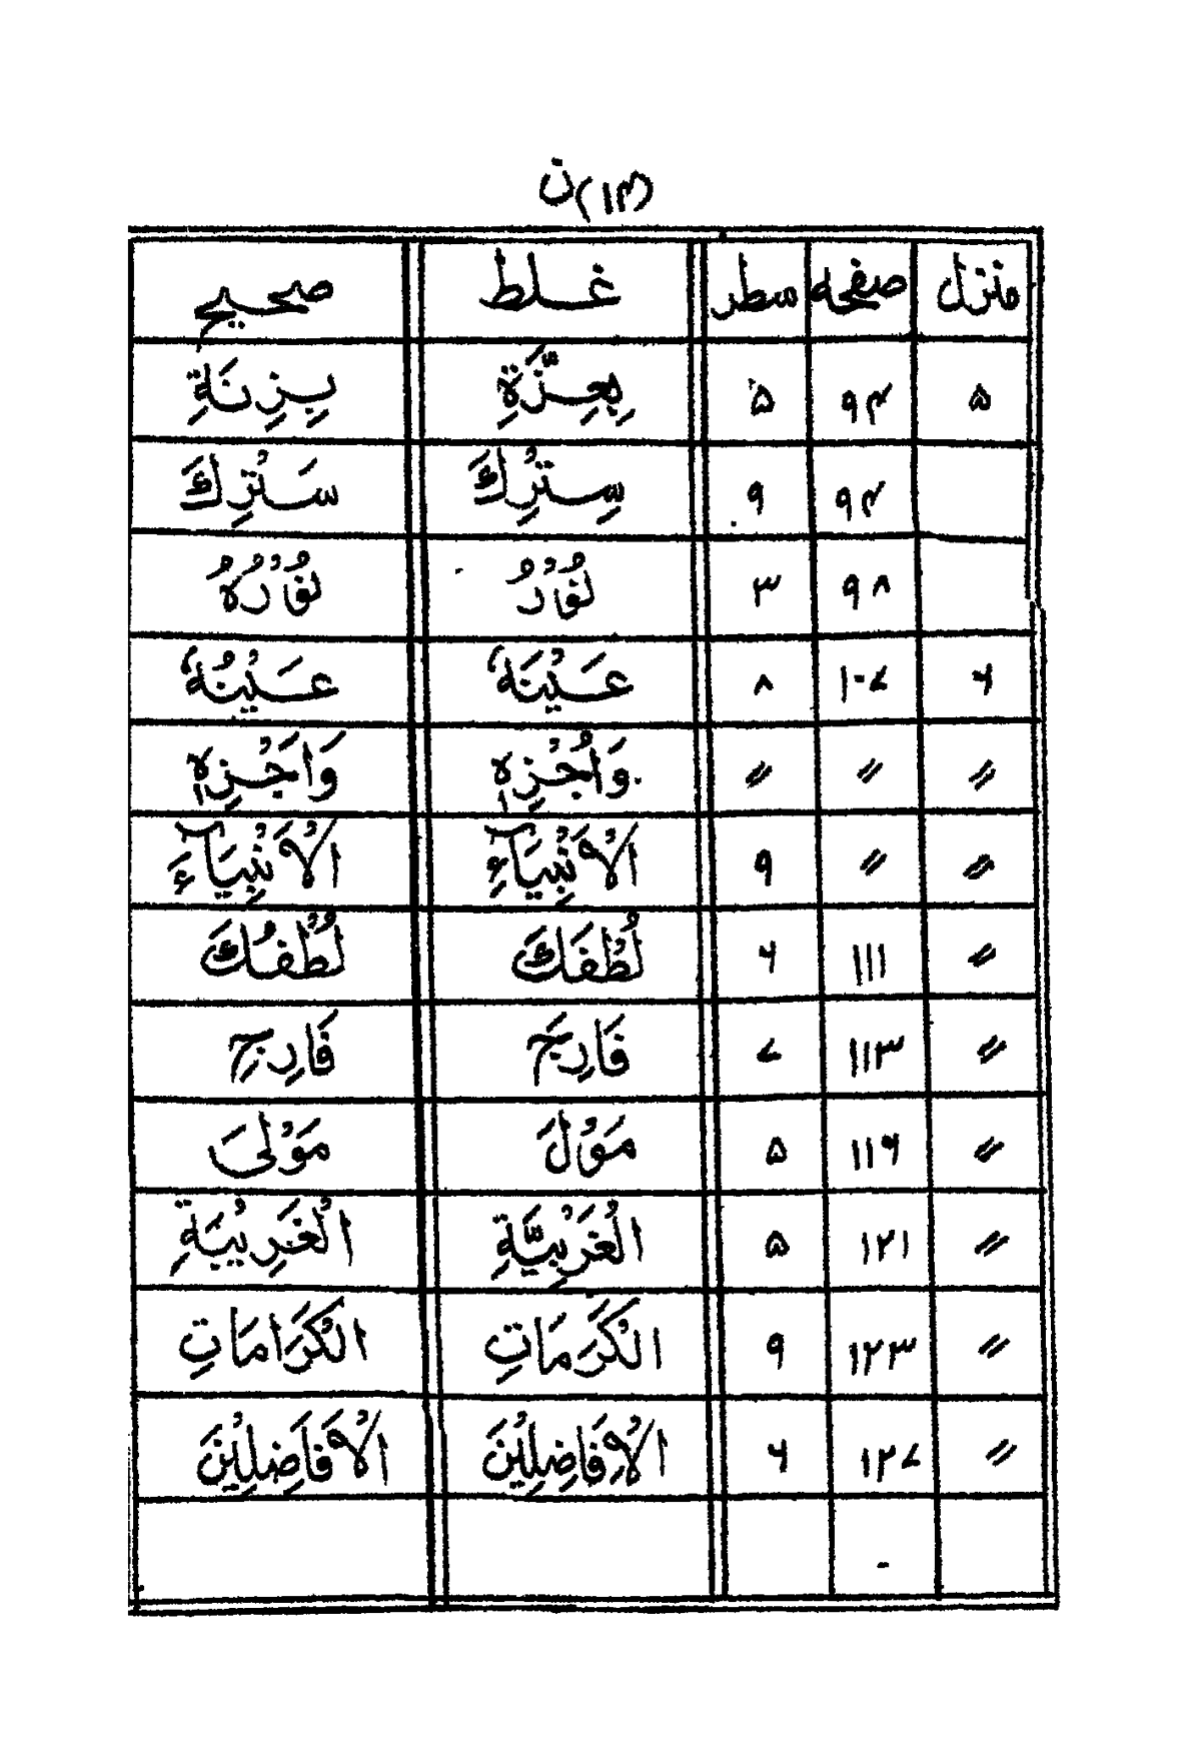 (۱۴) ن
منزل صفحه سطر غلط صحیح
۵ ۹۴ ۵ بِعِزَّةِ بِزِنَةِ
۹۴ ۹ سِتْرِكَ سَتْرِكَ
۹۸ ۳ نُوْرُ نُوْرُهُ
۶ ۱۰۷ ۸ عَيْنَهٗ عَيْنُهٗ
〃 〃 〃 وَاُجْزِهٖ وَاَجْزِهٖ
〃 〃 ۹ الْاَنْبِيَآءِ الْاَنْبِيَآءَ
〃 ۱۱۱ ۶ لُطْفَكَ لُطْفُكَ
〃 ۱۱۳ ۷ فَارِجَ فَارِجِ
〃 ۱۱۶ ۵ مَوْلَ مَوْلَى
〃 ۱۲۱ ۵ الْغَرْبِيَّةِ الْغَرِيْبَةِ
〃 ۱۲۳ ۹ الْكَرَمَاتِ الْكَرَامَاتِ
〃 ۱۲۷ ۶ الْاِفَاضِلِيْنَ الْاَفَاضِلِيْنَ